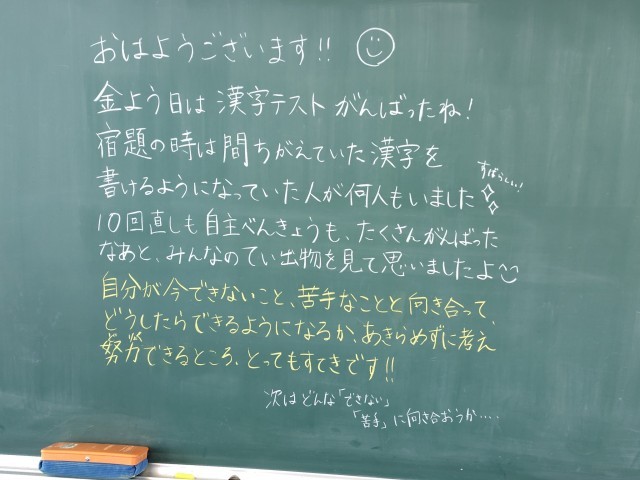 おはようございます!!
金よう日は漢字テストがんばったね!
宿題の時は間ちがえていた漢字を
書けるようになっていた人が何人もいました
すばらしい!
10回直しも自主べんきょうも、たくさんがんばった
なあと、みんなのてい出物を見て思いましたよ
自分が今できないこと、苦手なことと向き合って、
どうしたらできるようになるか、あきらめずに考え
努力できるところ、とってもすてきです!!
次はどんな「できない」
「苦手」に向き合おうか....